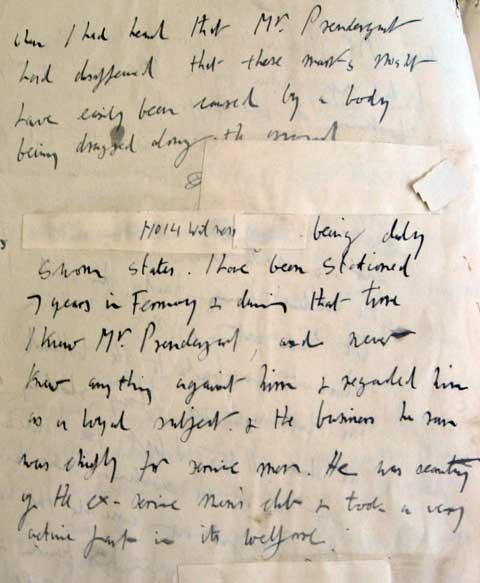 when I had heard that Mr. Prendergast
had disappeared that these marks might
have easily been caused by a body
being dragged along the ground
8
14 Witness being duly
sworn states. I have been stationed
7 years in Fermoy & during that time
I knew Mr. Prendergast, and never
knew anything against him & regarded him
as a loyal subject. & the business he ran
was chiefly for service men. He was secretary
of the ex-service men's club & took a very
active part in its welfare.